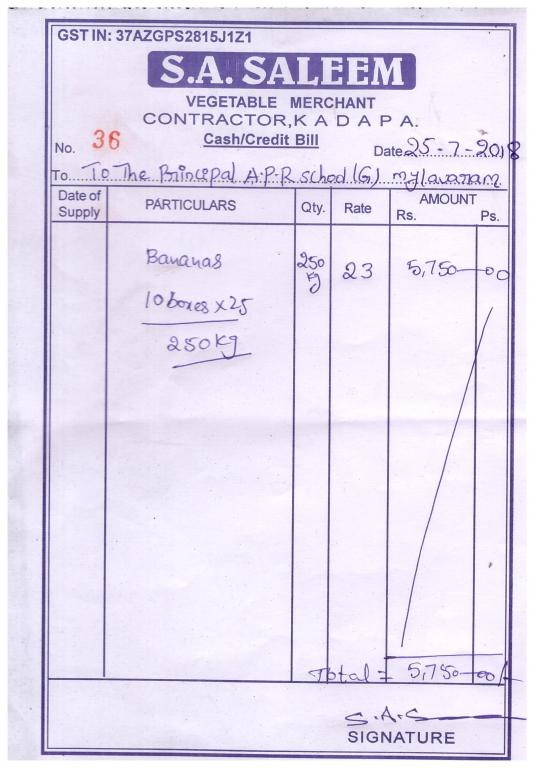 GST IN: 37AZGPS2815J1Z1
S.A. SALEEM
VEGETABLE MERCHANT
CONTRACTOR, K A D A P A.
Cash/Credit Bill
No. 36 Date 25-7-2018
To To The Principal A.P.R school (G) mylavaram
Date of Supply PARTICULARS Qty. Rate AMOUNT Rs. Ps.
Bananas 250 kg 23 5,750-00
10 boxes x 25
250 Kg
Total = 5,750-00/-
S.A.S
SIGNATURE